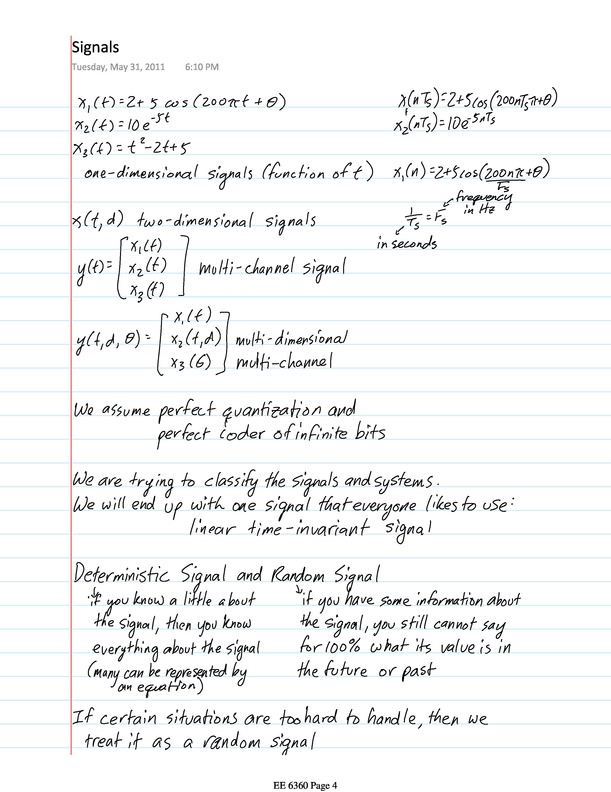 Signals
Tuesday, May 31, 2011 6:10 PM
x₁(t)=2+5 cos(200πt+θ)
x₂(t)=10e^-5t
x₃(t)=t²-2t+5
one-dimensional signals (function of t)
x₁(nTs)=2+5cos(200nTsπ+θ)
x₂(nTs)=10e^-5nTs
x₁(n)=2+5cos(200nπ/Fs+θ)
1/Ts=Fs
frequency
in Hz
in seconds
x(t,d) two-dimensional signals
y(t)=[x₁(t)
x₂(t)
x₃(t)] multi-channel signal
y(t,d,θ)=[x₁(t)
x₂(t,d) multi-dimensional
x₃(θ)] multi-channel
We assume perfect quantization and
perfect coder of infinite bits
We are trying to classify the signals and systems.
We will end up with one signal that everyone likes to use:
linear time-invariant signal
Deterministic Signal and Random Signal
if you know a little about
the signal, then you know
everything about the signal
(many can be represented by
an equation)
if you have some information about
the signal, you still cannot say
for 100% what its value is in
the future or past
If certain situations are too hard to handle, then we
treat it as a random signal
EE 6360 Page 4